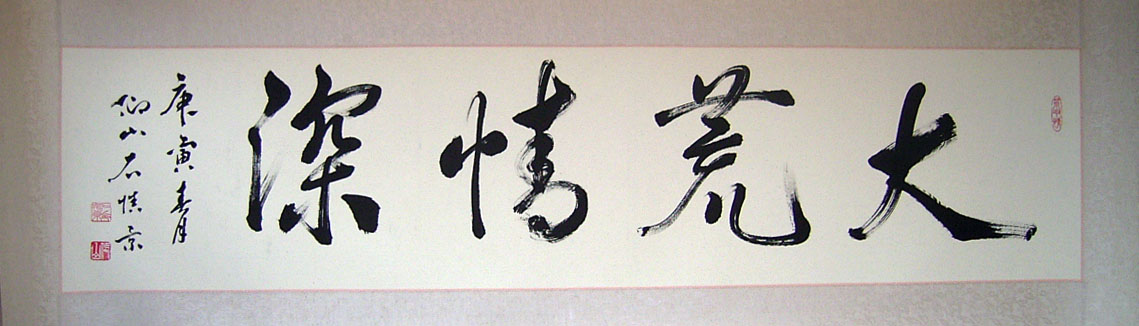 大荒情深
庚寅春月
仰山石慎京